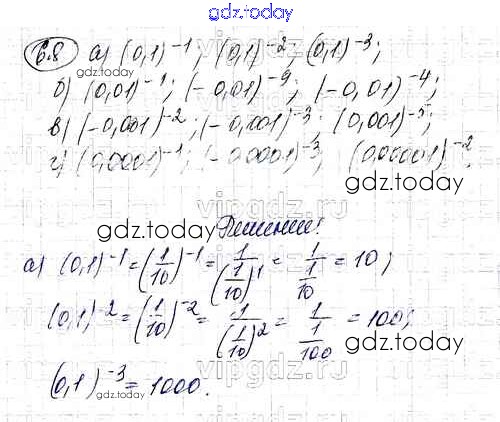 gdz.today
6.8 а) (0,1)⁻¹; (0,1)⁻²; (0,1)⁻³;
gdz.today
б) (0,01)⁻¹; (-0,01)⁻⁹; (-0,01)⁻⁴;
в) (-0,001)⁻²; (-0,001)⁻³; (0,001)⁻⁵;
г) (0,0001)⁻¹; (-0,0001)⁻³; (0,00001)⁻².
gdz.today
vipgdz.today
gdz.today
Решение:
а) (0,1)⁻¹ = (1/10)⁻¹ = 1/(1/10)¹ = 1/(1/10) = 10;
(0,1)⁻² = (1/10)⁻² = 1/(1/10)² = 1/(1/100) = 100;
gdz.today
gdz.today
(0,1)⁻³ = 1000.
vipgdz.today